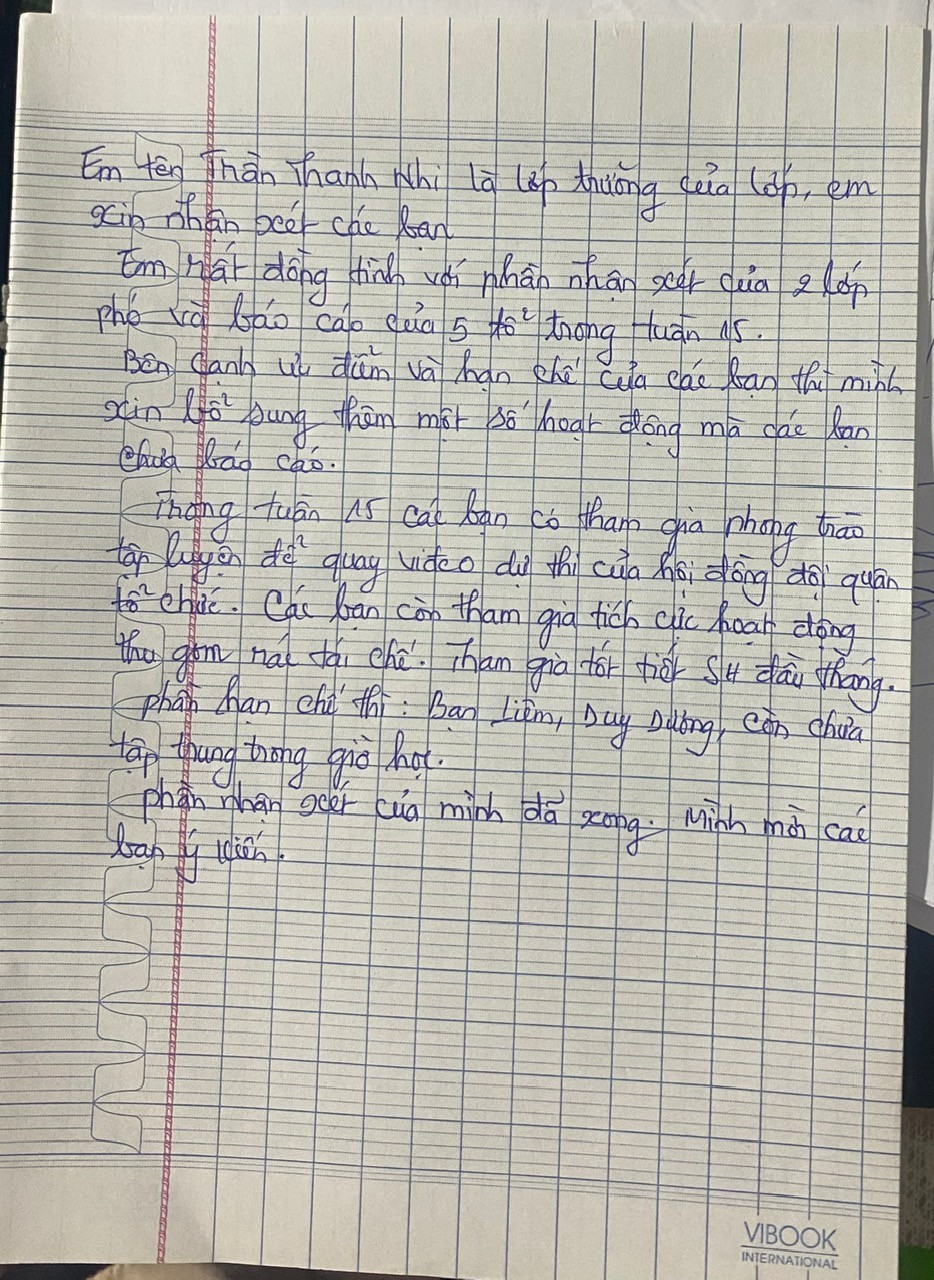 Em tên Trần Thanh Nhi là lớp trưởng của lớp, em
xin nhận xét các bạn
Em rất đồng tình với phần nhận xét của 2 lớp
phó và báo cáo của 5 tổ trong tuần 15.
Bên cạnh ưu điểm và hạn chế của các bạn thì mình
xin bổ sung thêm một số hoạt động mà các bạn
chưa báo cáo.
Trong tuần 15 các bạn có tham gia phong trào
tập luyện để quay video dự thi của hội đồng đội quận
tổ chức. Các bạn còn tham gia tích cực hoạt động
thu gom rác tái chế. Tham gia tốt tiết SH đầu tháng.
phần hạn chế thì: Bạn Liêm, Duy Dương, còn chưa
tập trung trong giờ học.
phần nhận xét của mình đã xong. Mình mời các
bạn ý kiến.
VIBOOK
INTERNATIONAL